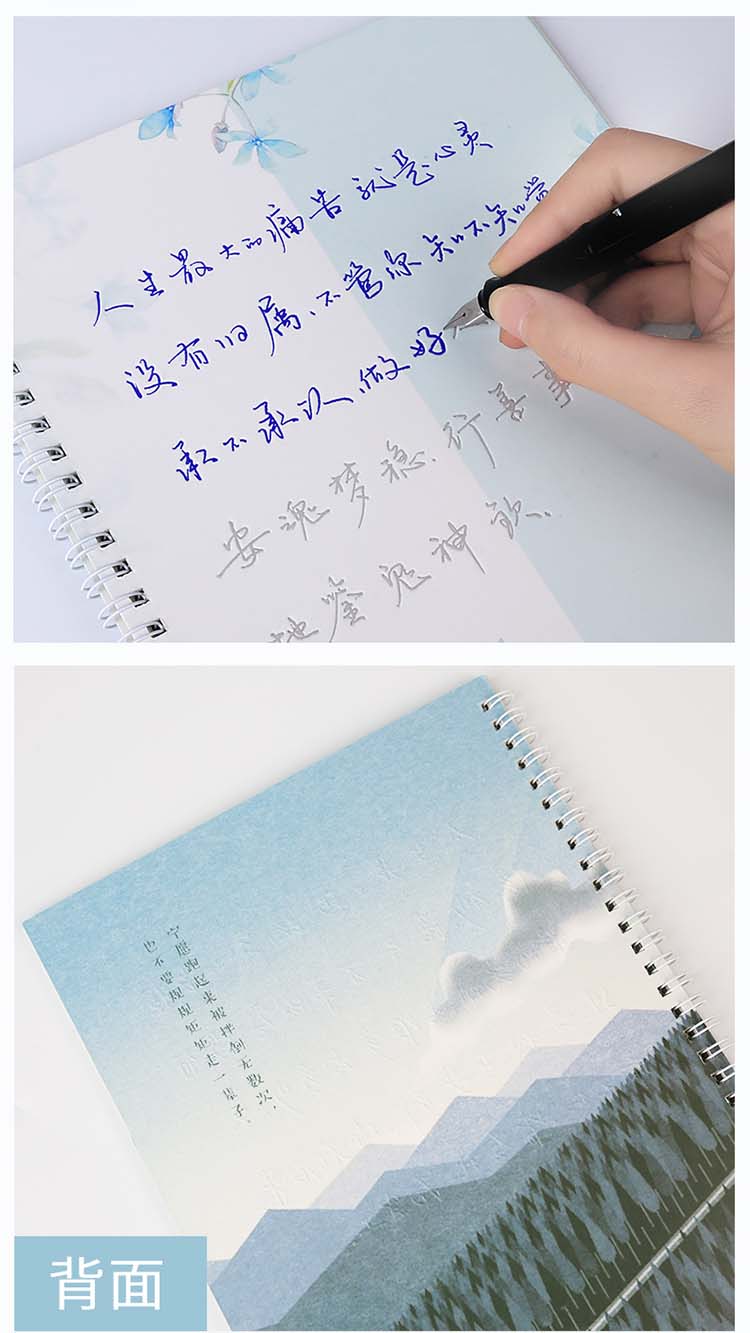 人生最大的痛苦就是心灵
没有归属、不管你知不知觉
承不承认、做好
安魂梦稳、行善事
地鉴鬼神钦、
宁愿跑起来被拌倒无数次，
也不要规规矩矩走一辈子、
背面